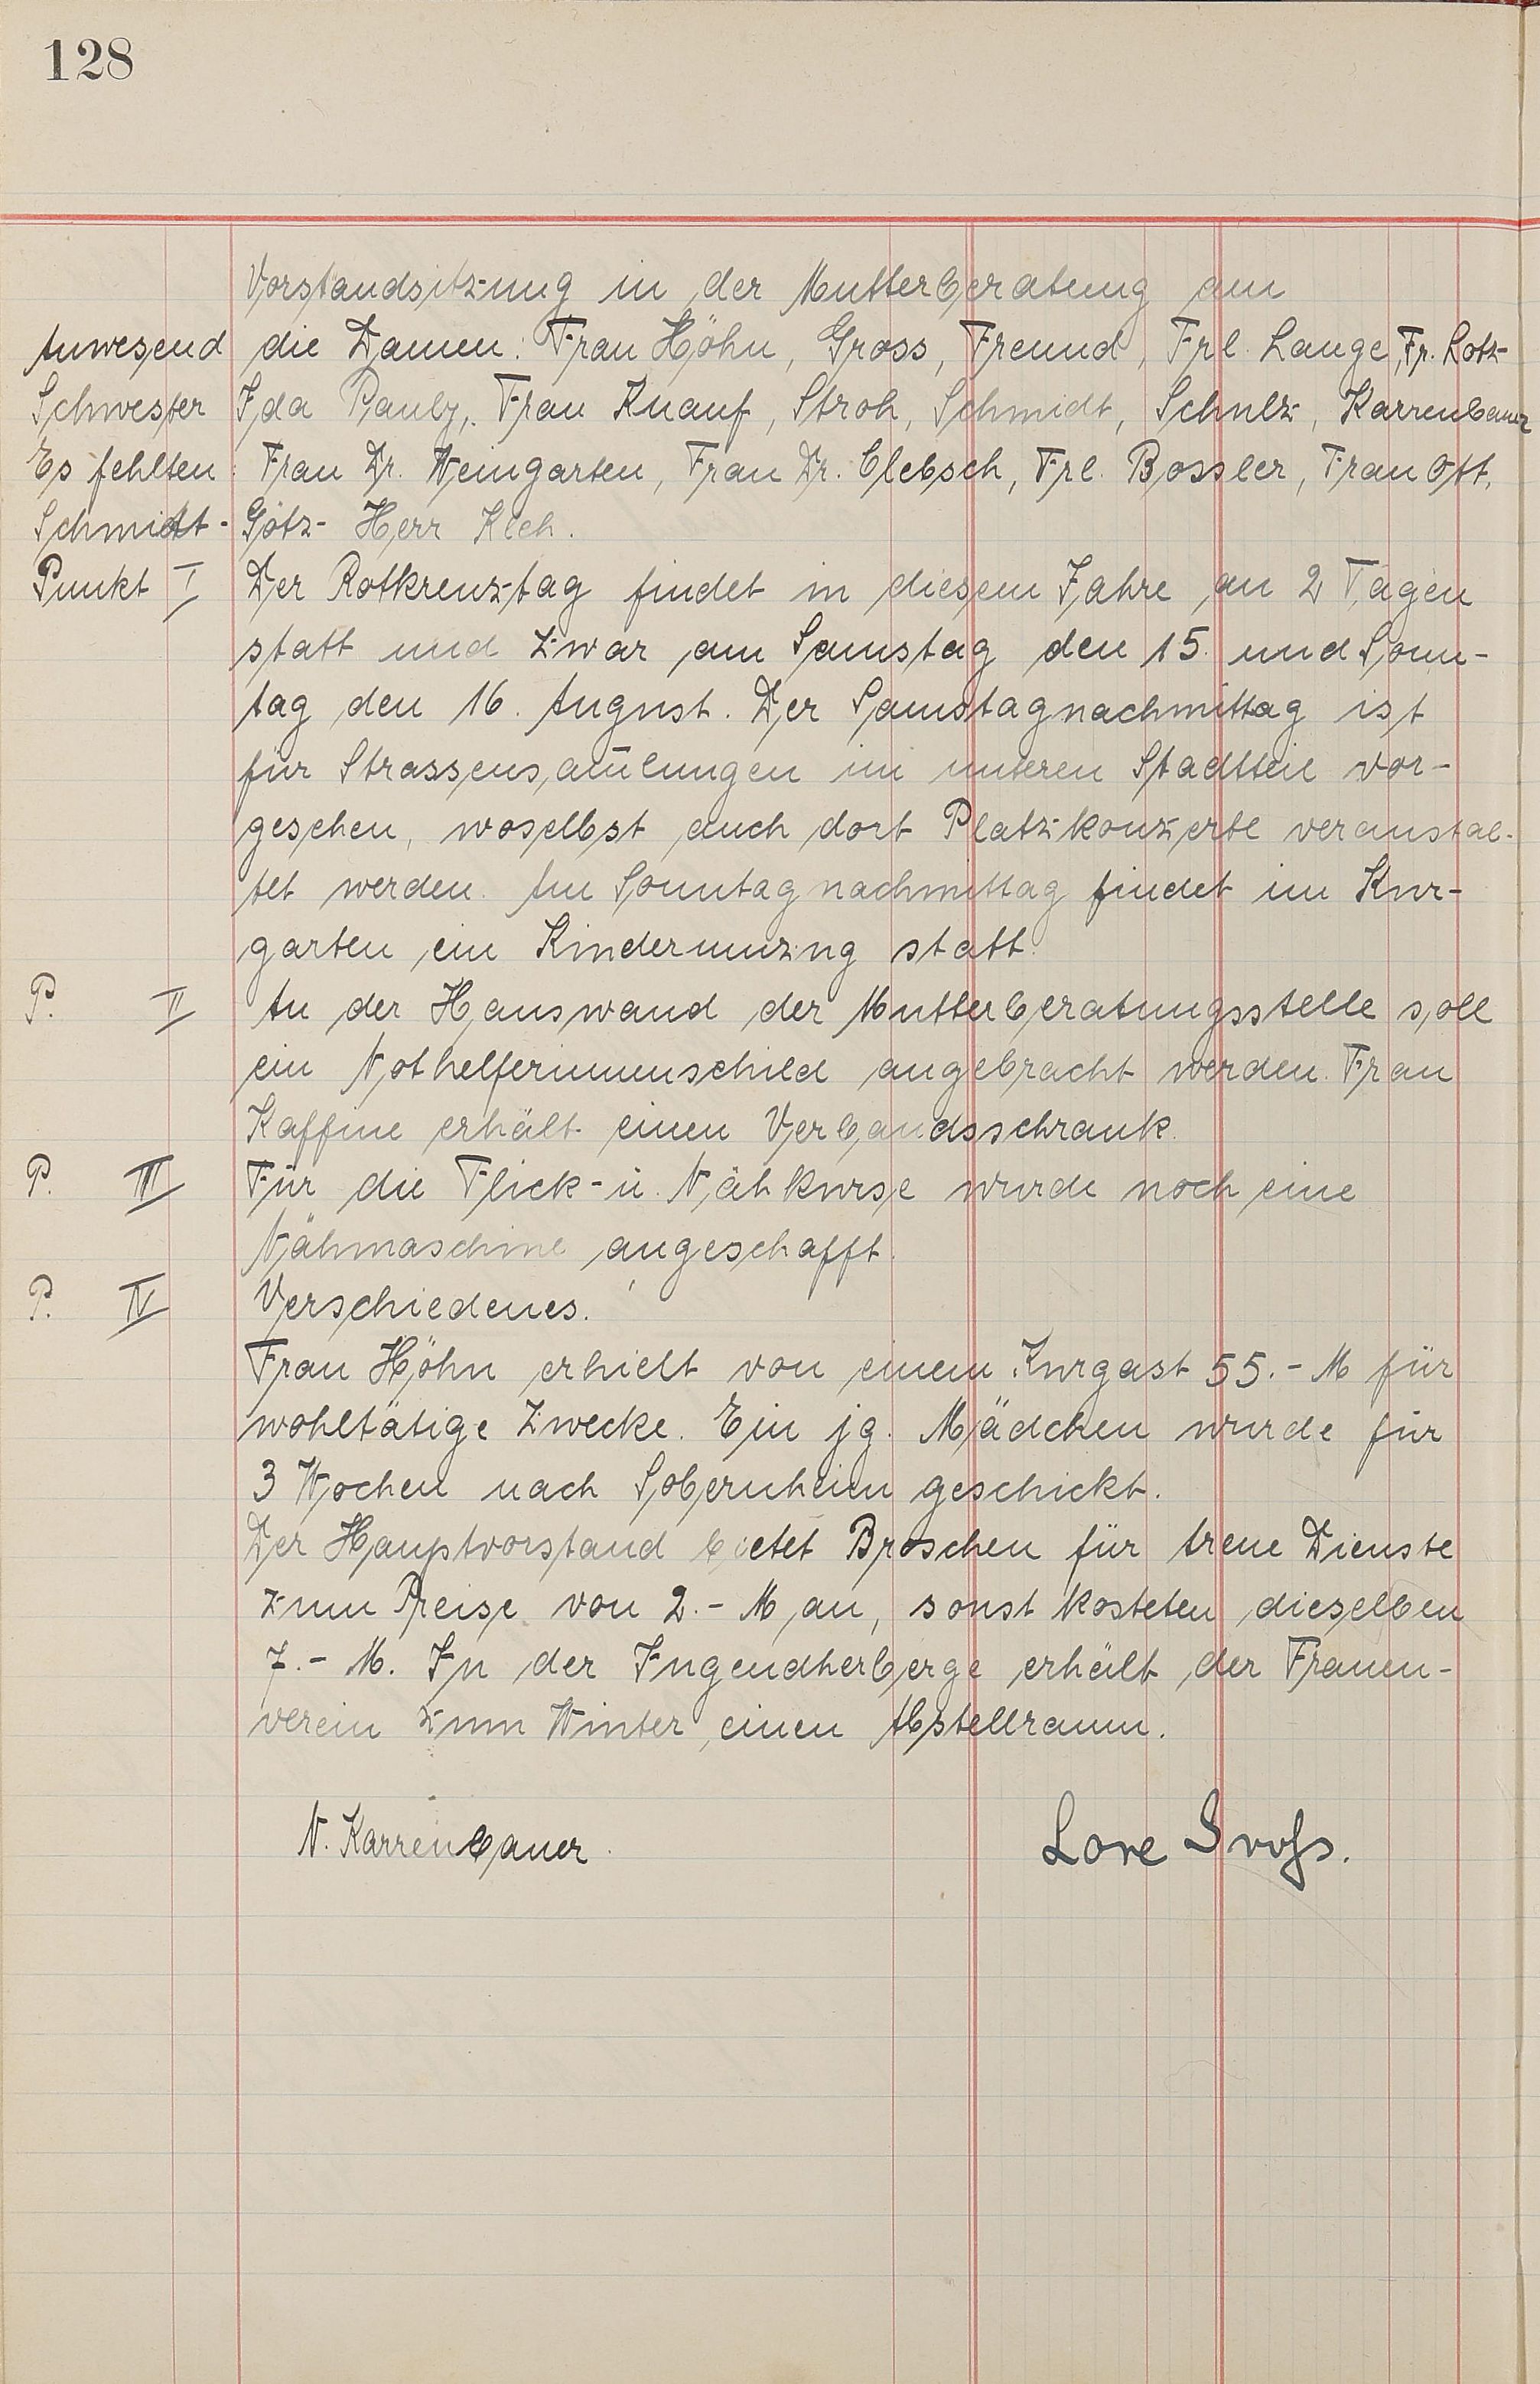 128
Vorstandsitzung in der Mutterberatung am
Anwesend die Damen: Frau Höhn, Gross, Freund, Frl. Lange, Fr. Lotz
Schwester Ida Pauly, Frau Knauf, Stroh, Schmidt, Schulz, Karrenbauer
Es fehlten: Frau Dr. Weingarten, Frau Dr. Clebsch, Frl. Bossler, Frau Ott,
Schmidt-Götz- Herr
Punkt I Der Rotkreuztag findet in diesem Jahre an 2 Tagen
statt und zwar am Samstag den 15. und Sonn-
tag den 16. August. Der Samstagnachmittag ist
für Strassensam̄lungen im unteren Stadtteil vor-
gesehen, woselbst auch dort Platzkonzerte veranstal-
tet werden. Am Sonntagnachmittag findet im Kur-
garten ein Kinderumzug statt.
P. II An der Hauswand der Mutterberatungsstelle soll
ein Nothelferinnenschild angebracht werden. Frau
Kaffine erhält einen Verbandsschrank.
P. III Für die Flick- u. Nähkurse wurde noch eine
Nähmaschine angeschafft.
P. IV Verschiedenes.
Frau Höhn erhielt von einem Kurgast 55.- M für
wohltätige Zwecke. Ein jg. Mädchen wurde für
3 Wochen nach Sobernheim geschickt.
Der Hauptvorstand bietet Broschen für treue Dienste
zum Preise von 2.- M an, sonst kosteten dieselben
7.- M. In der Jugendherberge erhält der Frauen-
verein zum Winter einen Abstellraum.
N. Karrenbauer. Lore Groß.